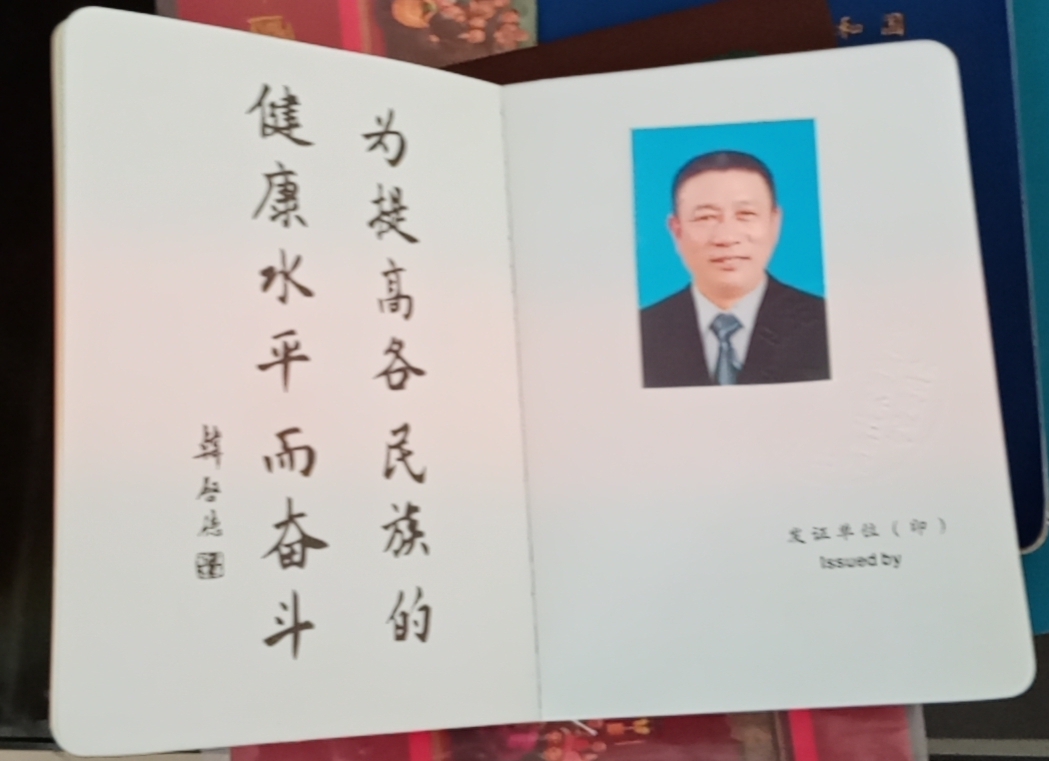 为提高各民族的
健康水平而奋斗
韩启德
发证单位（印）
Issued by
和国